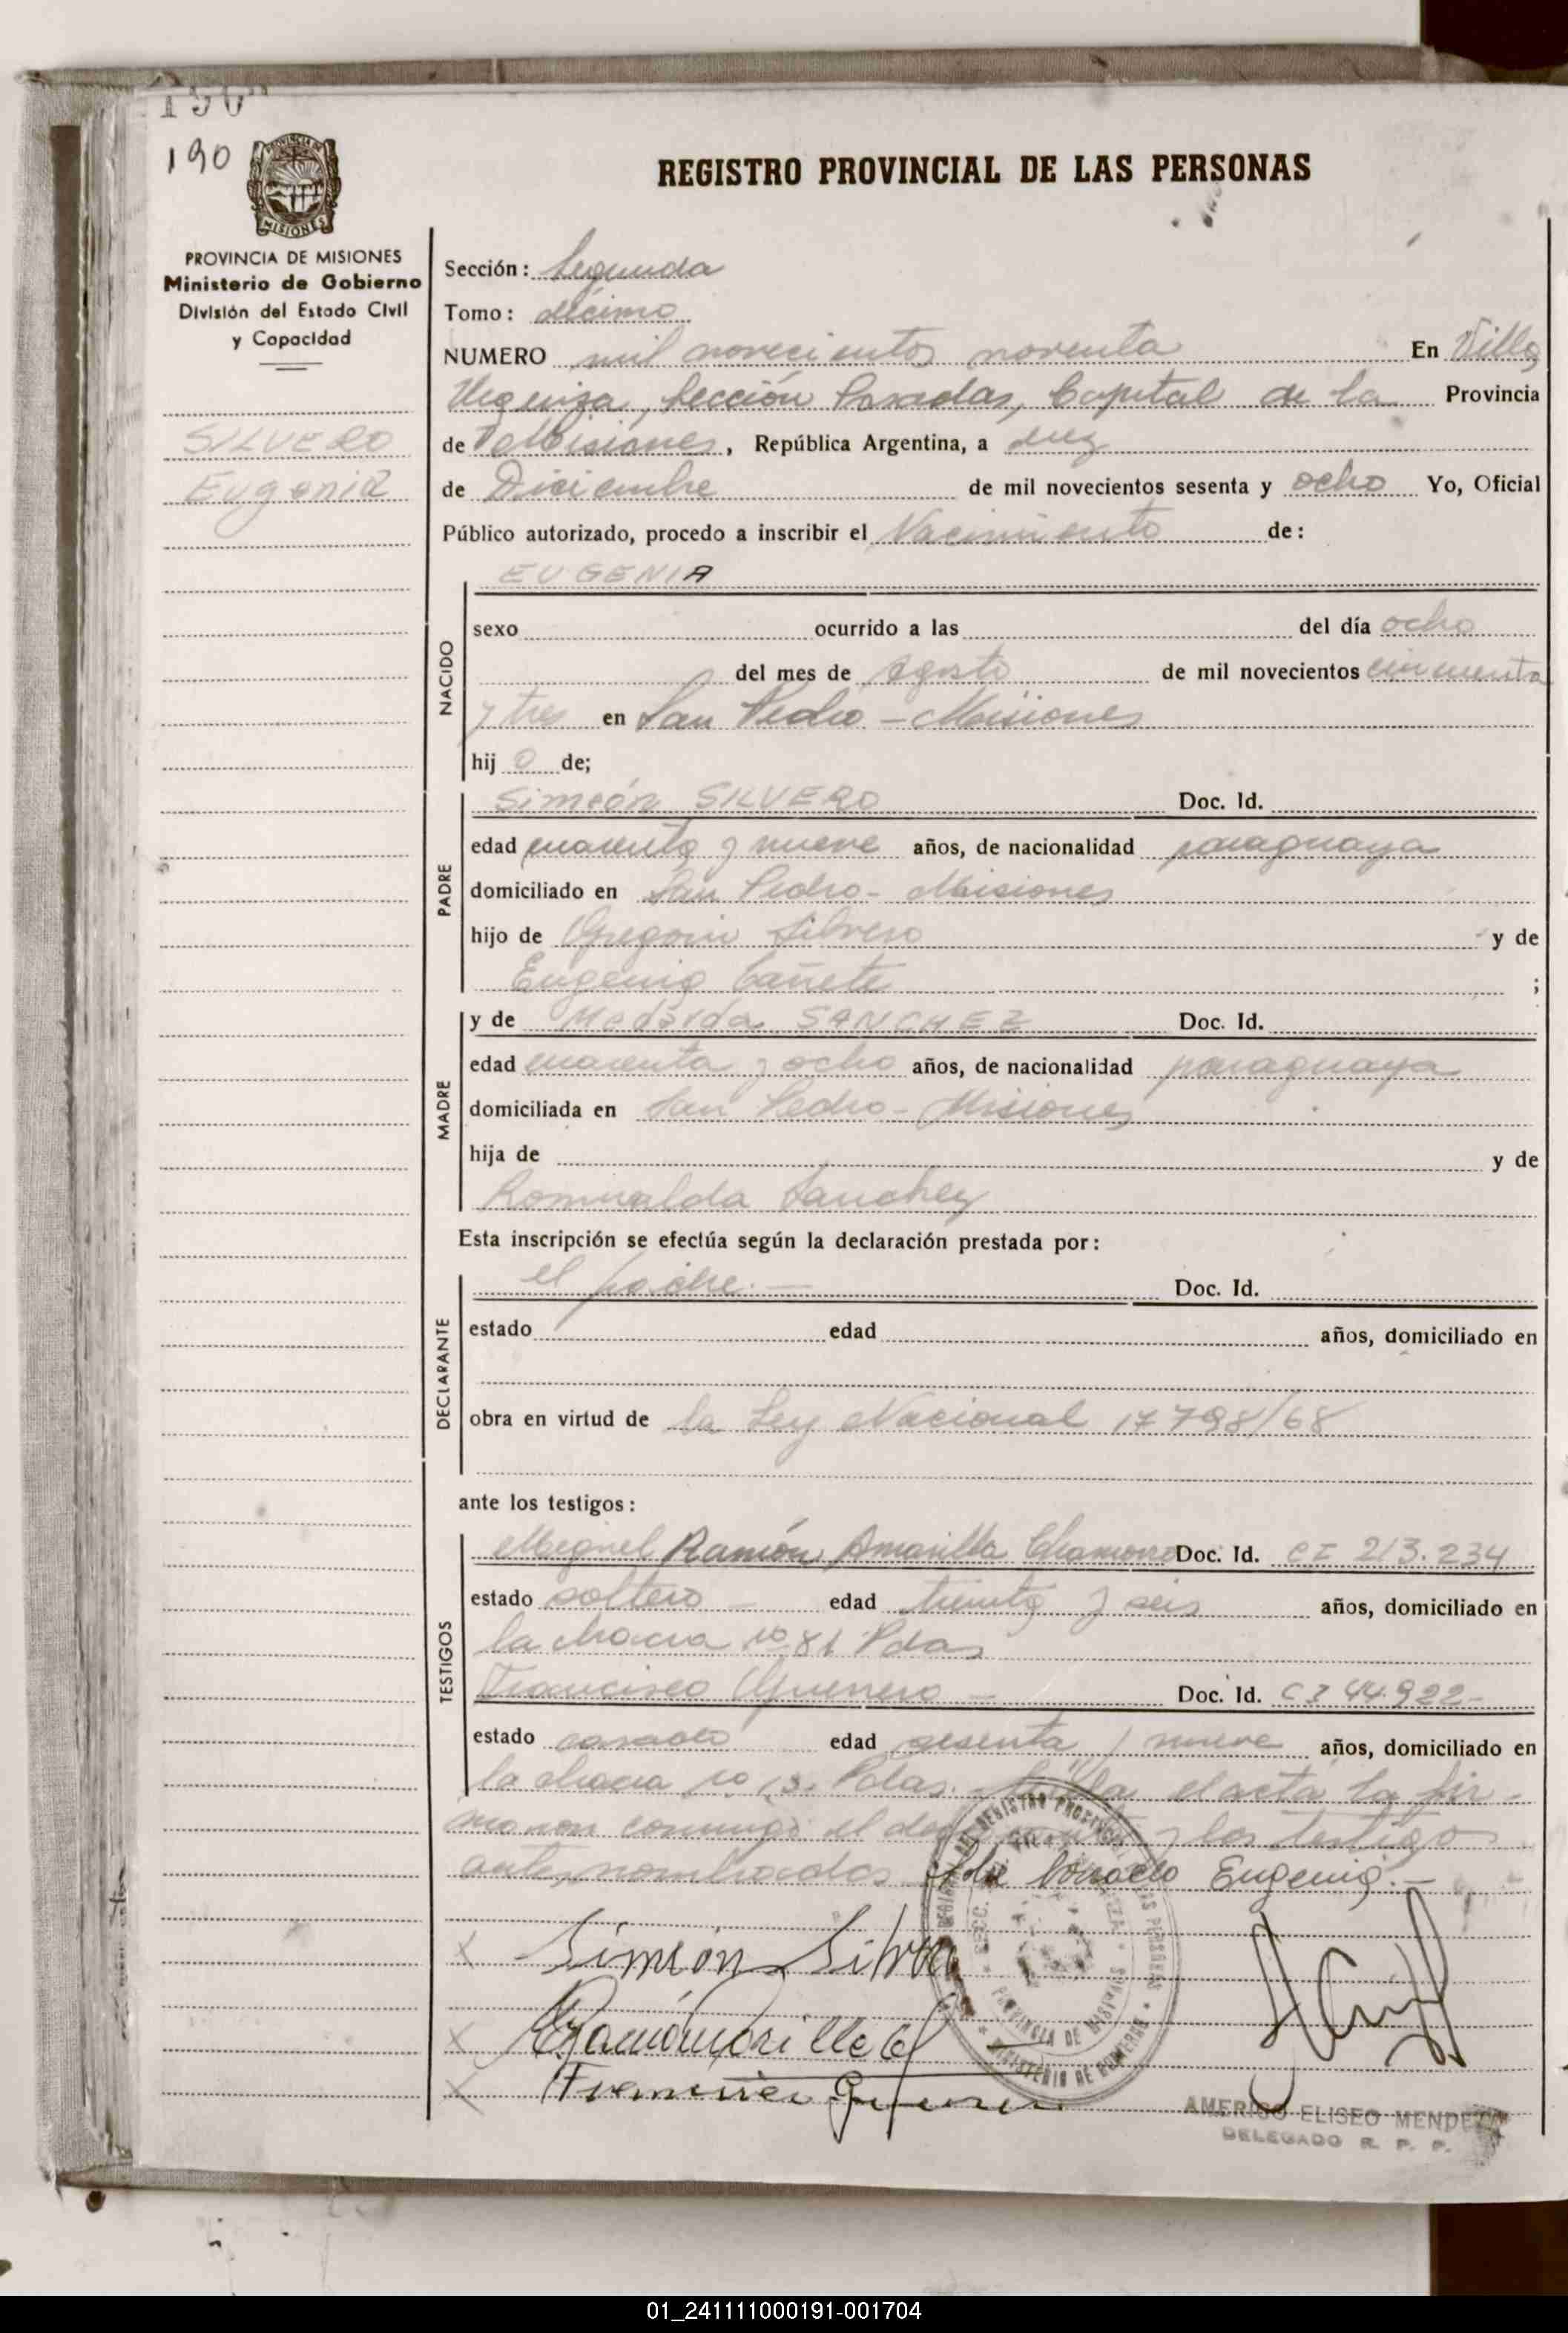 190
190
MISIONES
PROVINCIA DE MISIONES
Ministerio de Gobierno
División del Estado Civil
y Capacidad
SILVERO
Eugenia
REGISTRO PROVINCIAL DE LAS PERSONAS
Sección: Segunda
Tomo: décimo
NUMERO mil novecientos noventa En Villa
Urquiza, Sección Posadas, Capital de la Provincia
de Misiones, República Argentina, a diez
de Diciembre de mil novecientos sesenta y ocho Yo, Oficial
Público autorizado, procedo a inscribir el Nacimiento de:
EUGENIA
NACIDO
sexo ocurrido a las del día ocho
del mes de Agosto de mil novecientos cincuenta
y tres en San Pedro - Misiones
hij o de;
PADRE
Simeón SILVERO Doc. Id.
edad cuarenta y nueve años, de nacionalidad paraguaya
domiciliado en San Pedro - Misiones
hijo de Gregorio Silvero y de
Eugenia Cañete ;
MADRE
y de SANCHEZ Doc. Id.
edad cuarenta y ocho años, de nacionalidad paraguaya
domiciliada en San Pedro - Misiones
hija de y de
Romualda Sanchez
Esta inscripción se efectúa según la declaración prestada por:
DECLARANTE
el padre.— Doc. Id.
estado edad años, domiciliado en
obra en virtud de la Ley Nacional 17798/68
ante los testigos:
TESTIGOS
Miguel Ramón Amarilla Chamorro Doc. Id. CI 213.234
estado soltero edad treinta y seis años, domiciliado en
la chacra no 81 Pdas
Francisco Guerrero — Doc. Id. CI 44.922-
estado casado edad sesenta y nueve años, domiciliado en
la chacra no 13. Pdas. Leída el acta la fir-
maron conmigo el declarante y los testigos
antes nombrados Eugenia.—
x Simeón Silvero
x
x Francisco Guerrero
REGISTRO PROVINCIAL DE LAS PERSONAS
PROVINCIA DE MISIONES
MINISTERIO DE GOBIERNO
AMERICO ELISEO MENDEZ
DELEGADO R. P. P.
01_241111000191-001704